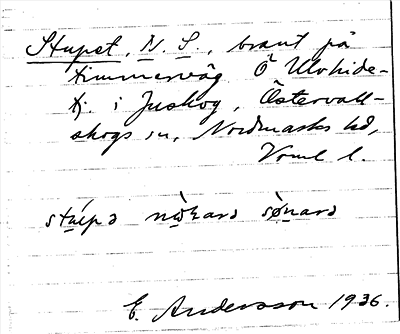 Stupet, N. S., brant på
timmerväg Ö Ulvhide-
tj. i Juskog, Östervall-
skogs sn, Nordmarks hd,
Vrml l.
stúpə nòkarə sònarə
E. Andersson 1936.